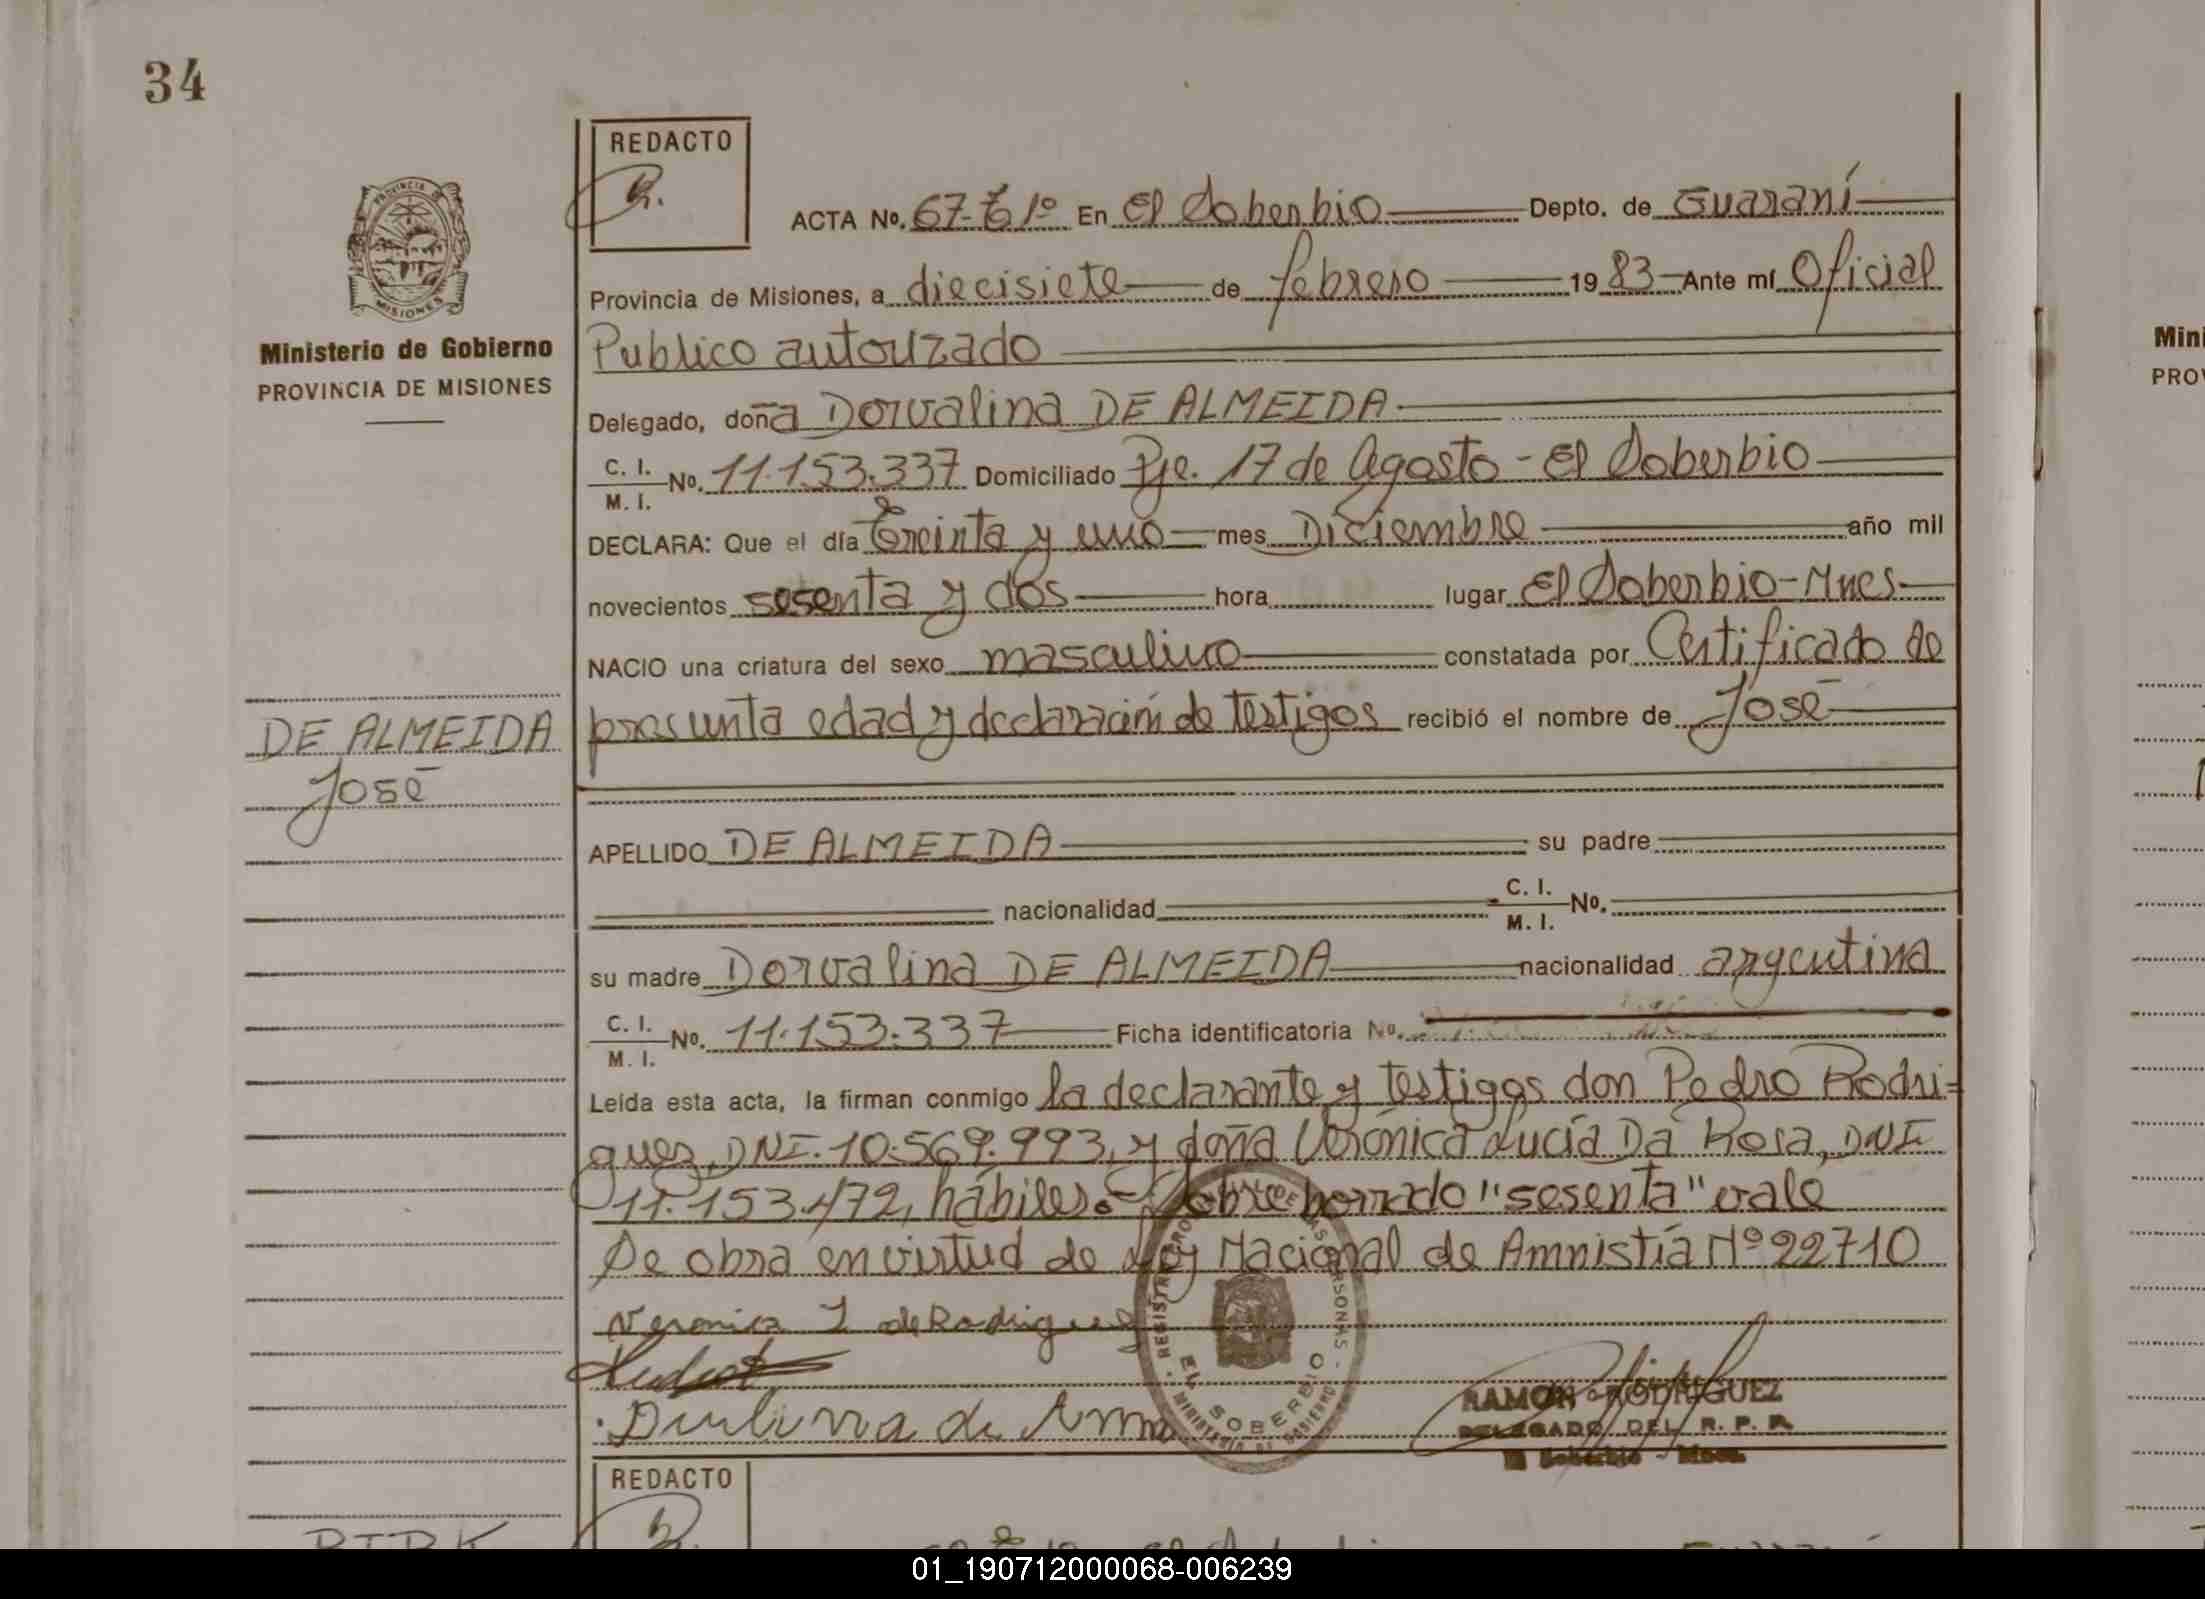 34
REDACTO
ACTA No. 67-T 1º En El Soberbio Depto. de Guaraní
Provincia de Misiones, a diecisiete de febrero 19 83 Ante mí Oficial
Publico autorizado
Delegado, doña Dorvalina DE ALMEIDA
C. I.
M. I. No. 11.153.337 Domiciliado Pje. 17 de Agosto - El Soberbio
DECLARA: Que el día treinta y uno mes Diciembre año mil
novecientos sesenta y dos hora lugar El Soberbio-Mnes
NACIO una criatura del sexo masculino constatada por Certificado de
presunta edad y declaración de testigos recibió el nombre de José
APELLIDO DE ALMEIDA su padre
nacionalidad C. I.
M. I. No.
su madre Dorvalina DE ALMEIDA nacionalidad argentina
C. I.
M. I. No. 11.153.337 Ficha identificatoria No.
Leída esta acta, la firman conmigo la declarante y testigos don Pedro Rodri=
guez, DNI. 10.569.993, y doña Verónica Lucía Da Rosa, DNI
11.153.472, hábiles.- Sobre borrado "sesenta" vale
Se obra en virtud de Ley Nacional de Amnistía Nº 22710
Veronica L de Rodriguez
RAMON RODRIGUEZ
DELEGADO DEL R. P. P.
El Soberbio - Mnes.
EL SOBERBIO
MINISTERIO DE GOBIERNO
PROVINCIA DE MISIONES
Ministerio de Gobierno
PROVINCIA DE MISIONES
DE ALMEIDA
José
REDACTO
Mini
PROV
01_190712000068-006239